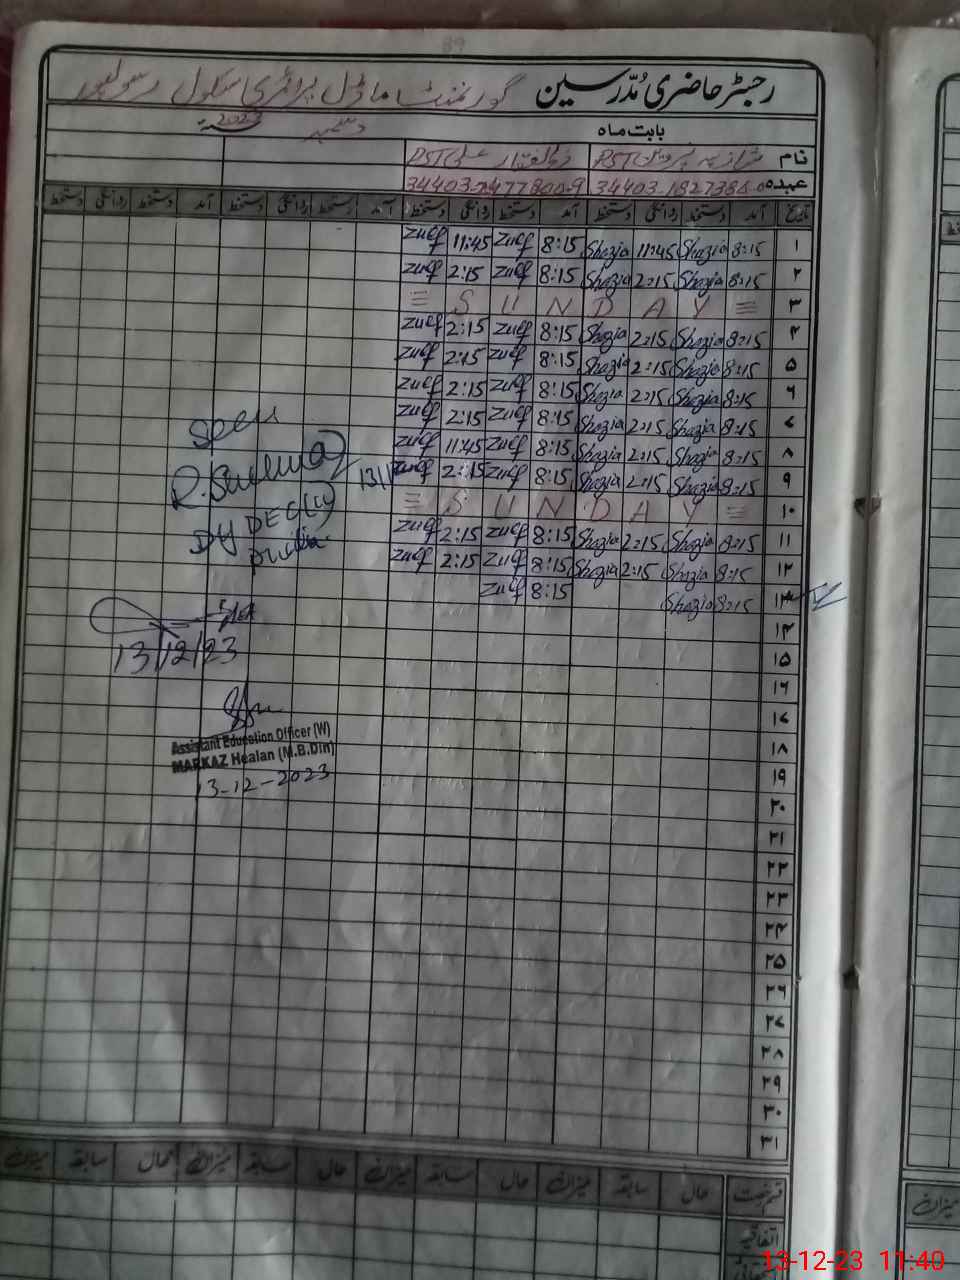 رجسٹر حاضری مُدّرسین گورنمنٹ ماڈل پرائمری سکول رسولپور
بابت ماہ دسمبر 2023
نام شازیہ پروین PST ذوالفقار علی PST
عہدہ 34403-1827388-0 34403-2477800-9
تاریخ آمد دستخط روانگی دستخط آمد دستخط روانگی دستخط آمد دستخط روانگی دستخط آمد دستخط روانگی دستخط
۱ 8:15 Shazia 11:45 Shazia 8:15 Zulf 11:45 Zulf
۲ 8:15 Shazia 2:15 Shazia 8:15 Zulf 2:15 Zulf
۳ ≡ S U N D A Y ≡
۴ 8:15 Shazia 2:15 Shazia 8:15 Zulf 2:15 Zulf
۵ 8:15 Shazia 2:15 Shazia 8:15 Zulf 2:15 Zulf
۶ 8:15 Shazia 2:15 Shazia 8:15 Zulf 2:15 Zulf
۷ 8:15 Shazia 2:15 Shazia 8:15 Zulf 2:15 Zulf
۸ 8:15 Shazia 2:15 Shazia 8:15 Zulf 11:45 Zulf
۹ 8:15 Shazia 2:15 Shazia 8:15 Zulf 2:15 Zulf
۱۰ ≡ S U N D A Y ≡
۱۱ 8:15 Shazia 2:15 Shazia 8:15 Zulf 2:15 Zulf
۱۲ 8:15 Shazia 2:15 Shazia 8:15 Zulf 2:15 Zulf
۱۳ 8:15 Shazia 8:15 Zulf
۱۴
۱۵
۱۶
۱۷
۱۸
۱۹
۲۰
۲۱
۲۲
۲۳
۲۴
۲۵
۲۶
۲۷
۲۸
۲۹
۳۰
۳۱
Seen
Dy DEO (W)
13/12/23
Assistant Education Officer (W)
MARKAZ Healan (M.B.Din)
13-12-2023
قسم رخصت حال سابقہ میزان حال سابقہ میزان حال سابقہ میزان حال سابقہ میزان
اتفاقیہ
میزان
13-12-23 11:40